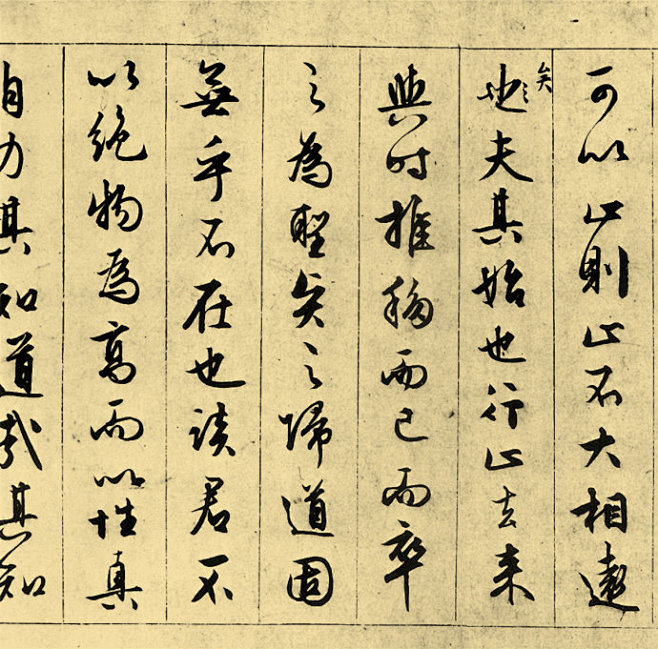 可以止則止不大相遠
也矣夫其始也行止去來
與時推移而已而卒
之為聖矣之歸道固
無乎不在也談君不
以絕物為高而以性真
自力其知道哉其知